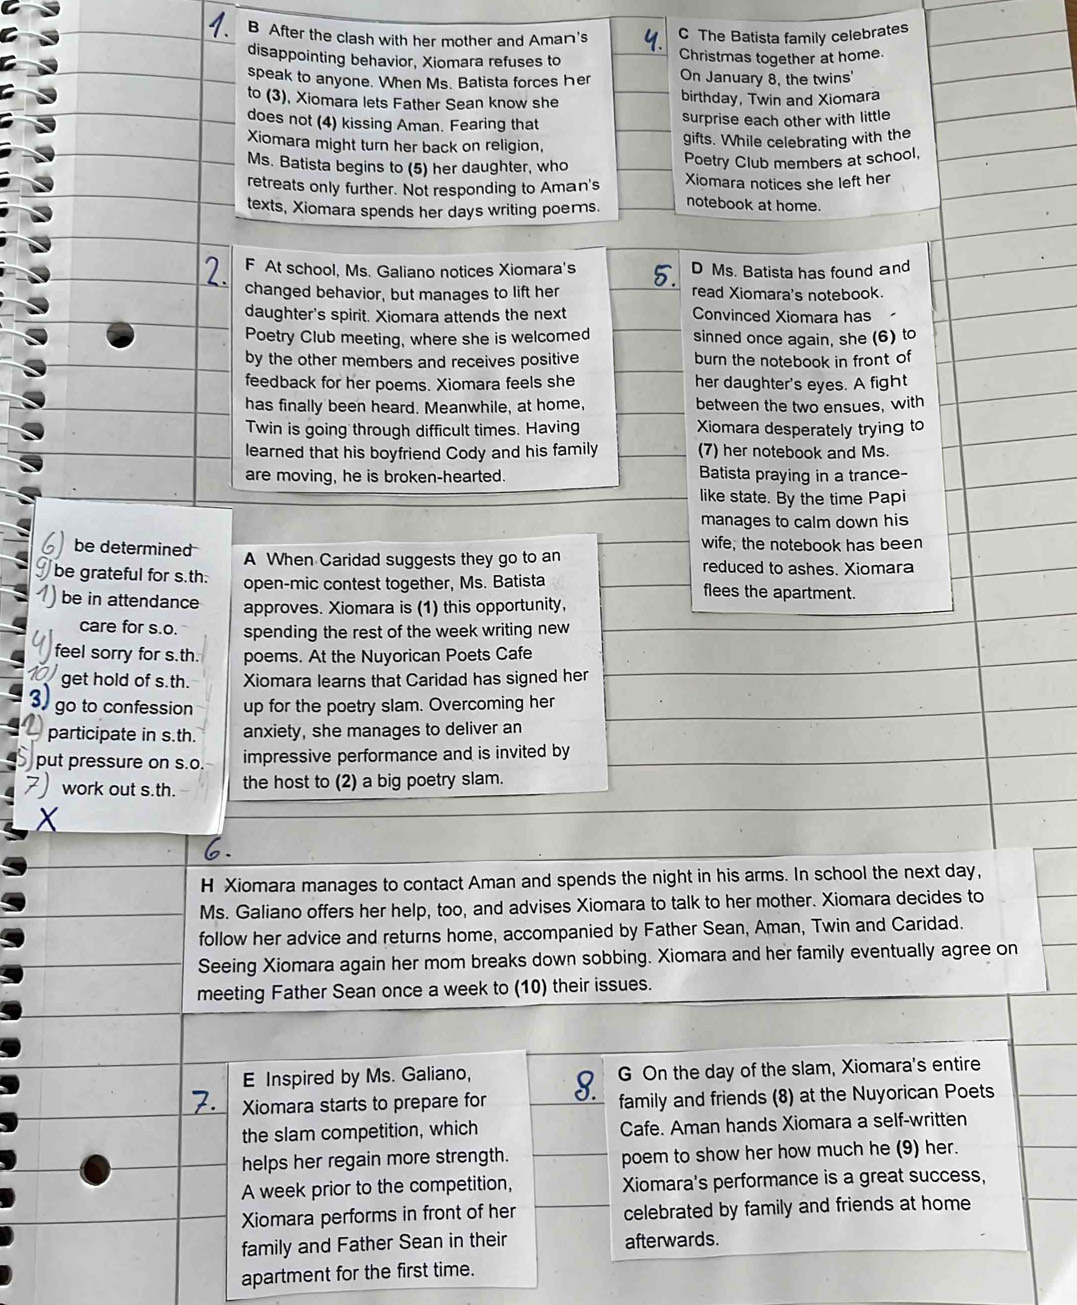 1.
B After the clash with her mother and Aman's
disappointing behavior, Xiomara refuses to
speak to anyone. When Ms. Batista forces her
to (3), Xiomara lets Father Sean know she
does not (4) kissing Aman. Fearing that
Xiomara might turn her back on religion,
Ms. Batista begins to (5) her daughter, who
retreats only further. Not responding to Aman's
texts, Xiomara spends her days writing poems.
2.
F At school, Ms. Galiano notices Xiomara's
changed behavior, but manages to lift her
daughter's spirit. Xiomara attends the next
Poetry Club meeting, where she is welcomed
by the other members and receives positive
feedback for her poems. Xiomara feels she
has finally been heard. Meanwhile, at home,
Twin is going through difficult times. Having
learned that his boyfriend Cody and his family
are moving, he is broken-hearted.
6) be determined
9) be grateful for s.th.
1) be in attendance
care for s.o.
4) feel sorry for s.th.
10) get hold of s.th.
3) go to confession
2) participate in s.th.
5) put pressure on s.o.
7) work out s.th.
X
A When Caridad suggests they go to an
open-mic contest together, Ms. Batista
approves. Xiomara is (1) this opportunity,
spending the rest of the week writing new
poems. At the Nuyorican Poets Cafe
Xiomara learns that Caridad has signed her
up for the poetry slam. Overcoming her
anxiety, she manages to deliver an
impressive performance and is invited by
the host to (2) a big poetry slam.
4.
C The Batista family celebrates
Christmas together at home.
On January 8, the twins'
birthday, Twin and Xiomara
surprise each other with little
gifts. While celebrating with the
Poetry Club members at school,
Xiomara notices she left her
notebook at home.
5.
D Ms. Batista has found and
read Xiomara's notebook.
Convinced Xiomara has
sinned once again, she (6) to
burn the notebook in front of
her daughter's eyes. A fight
between the two ensues, with
Xiomara desperately trying to
(7) her notebook and Ms.
Batista praying in a trance-
like state. By the time Papi
manages to calm down his
wife, the notebook has been
reduced to ashes. Xiomara
flees the apartment.
6.
H Xiomara manages to contact Aman and spends the night in his arms. In school the next day,
Ms. Galiano offers her help, too, and advises Xiomara to talk to her mother. Xiomara decides to
follow her advice and returns home, accompanied by Father Sean, Aman, Twin and Caridad.
Seeing Xiomara again her mom breaks down sobbing. Xiomara and her family eventually agree on
meeting Father Sean once a week to (10) their issues.
7.
E Inspired by Ms. Galiano,
Xiomara starts to prepare for
the slam competition, which
helps her regain more strength.
A week prior to the competition,
Xiomara performs in front of her
family and Father Sean in their
apartment for the first time.
8.
G On the day of the slam, Xiomara's entire
family and friends (8) at the Nuyorican Poets
Cafe. Aman hands Xiomara a self-written
poem to show her how much he (9) her.
Xiomara's performance is a great success,
celebrated by family and friends at home
afterwards.